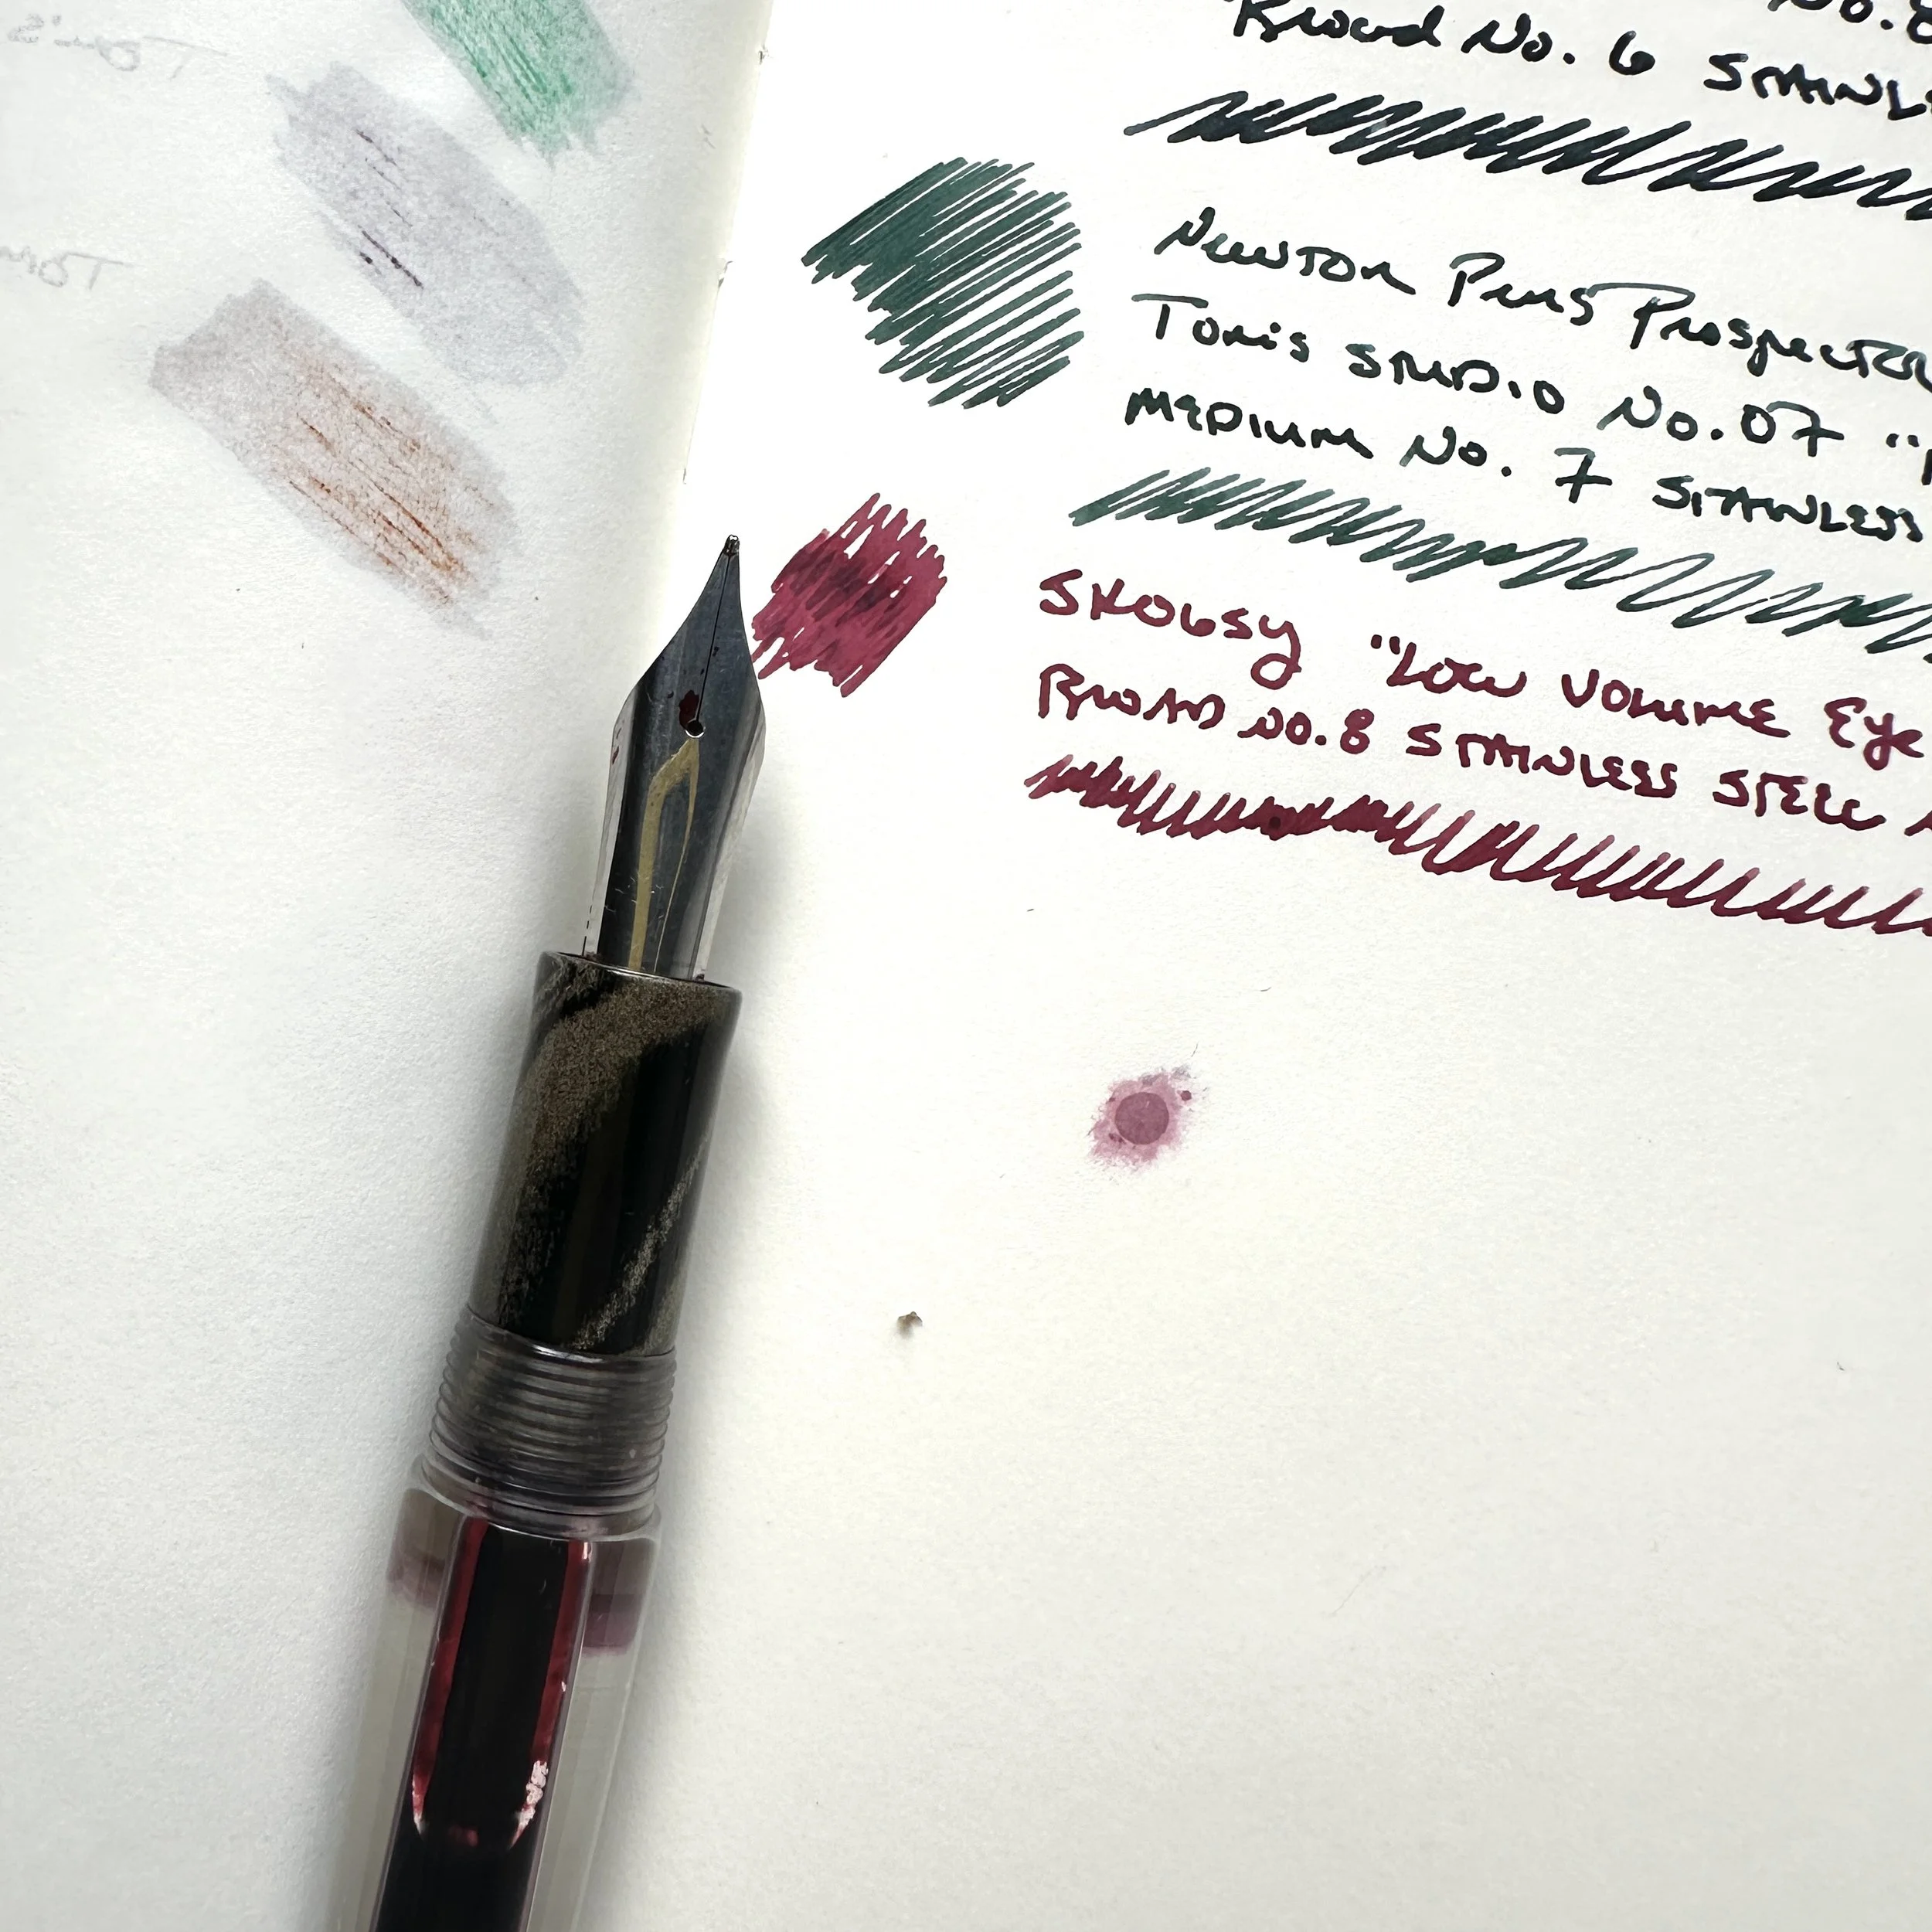 No.8
Broad No. 6 STAINL
NEWTON PENS PROSPECTOR
TONO'S STUDIO No. 07 "
MEDIUM No. 7 STAINLESS
SKOGSY "LOW VOLUME EYE
BROAD No. 8 STAINLESS STEEL